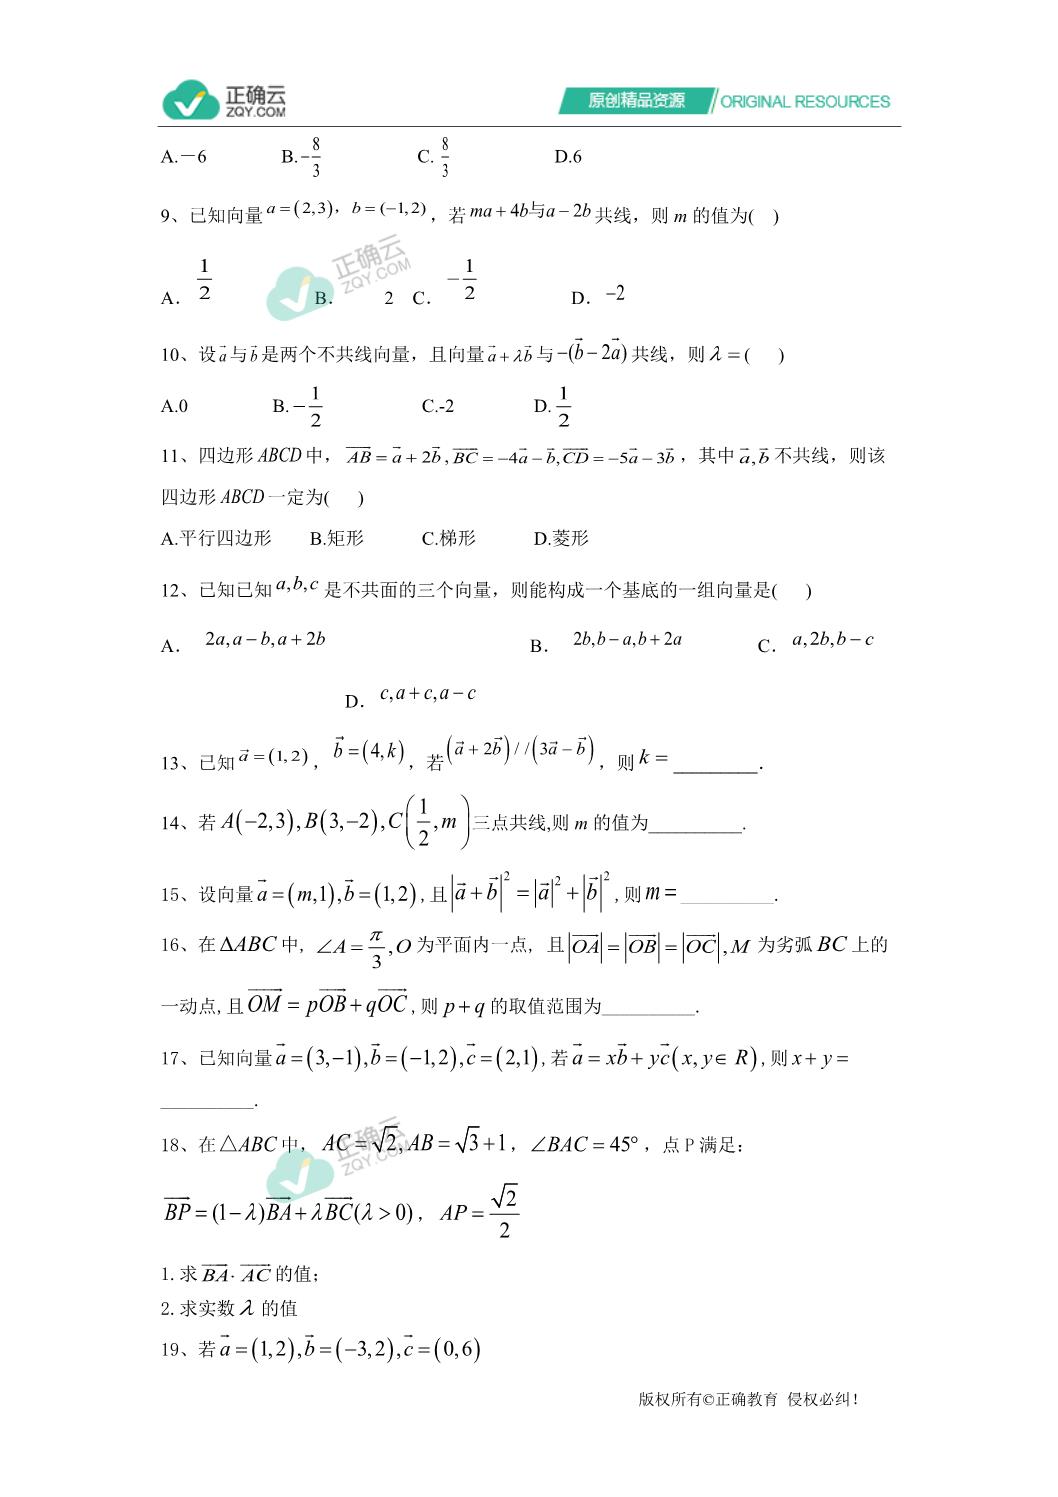 正确云 ZQY.COM 原创精品资源 ORIGINAL RESOURCES
A.－6 B.−8/3 C. 8/3 D.6
9、已知向量 a = (2,3)， b = (−1,2) ，若 ma + 4b与a − 2b 共线，则 m 的值为( )
A． 1/2 B． 2 C． −1/2 D．−2
正确云 ZQY.COM
10、设 a⃗ 与 b⃗ 是两个不共线向量，且向量 a⃗ + λb⃗ 与 −(b⃗ − 2a⃗) 共线，则 λ = ( )
A.0 B.−1/2 C.-2 D. 1/2
11、四边形 ABCD 中， AB⃗ = a⃗ + 2b⃗, BC⃗ = −4a⃗ − b⃗, CD⃗ = −5a⃗ − 3b⃗ ，其中 a⃗, b⃗ 不共线，则该
四边形 ABCD 一定为( )
A.平行四边形 B.矩形 C.梯形 D.菱形
12、已知已知 a,b,c 是不共面的三个向量，则能构成一个基底的一组向量是( )
A． 2a,a − b,a + 2b B． 2b,b − a,b + 2a C． a,2b,b − c
D． c,a + c,a − c
13、已知 a⃗ = (1,2) ， b⃗ = (4,k) ，若 (a⃗ + 2b⃗) // (3a⃗ − b⃗) ，则 k = _________．
14、若 A(−2,3), B(3,−2), C(1/2, m) 三点共线,则 m 的值为__________.
15、设向量 a⃗ = (m,1), b⃗ = (1,2) ,且 |a⃗ + b⃗|² = |a⃗|² + |b⃗|² ,则 m = __________.
16、在 ΔABC 中, ∠A = π/3, O 为平面内一点, 且 |OA⃗| = |OB⃗| = |OC⃗|, M 为劣弧 BC 上的
一动点,且 OM⃗ = pOB⃗ + qOC⃗ ,则 p + q 的取值范围为__________.
17、已知向量 a⃗ = (3,−1), b⃗ = (−1,2), c⃗ = (2,1) ,若 a⃗ = xb⃗ + yc⃗(x, y ∈ R) ,则 x + y =
__________.
18、在 △ABC 中， AC = √2, AB = √3 + 1 ，∠BAC = 45° ，点 P 满足：
正确云 ZQY.COM
BP⃗ = (1−λ)BA⃗ + λBC⃗(λ > 0) ， AP = √2/2
1.求 BA⃗ · AC⃗ 的值；
2.求实数 λ 的值
19、若 a⃗ = (1,2), b⃗ = (−3,2), c⃗ = (0,6)
版权所有©正确教育 侵权必纠！